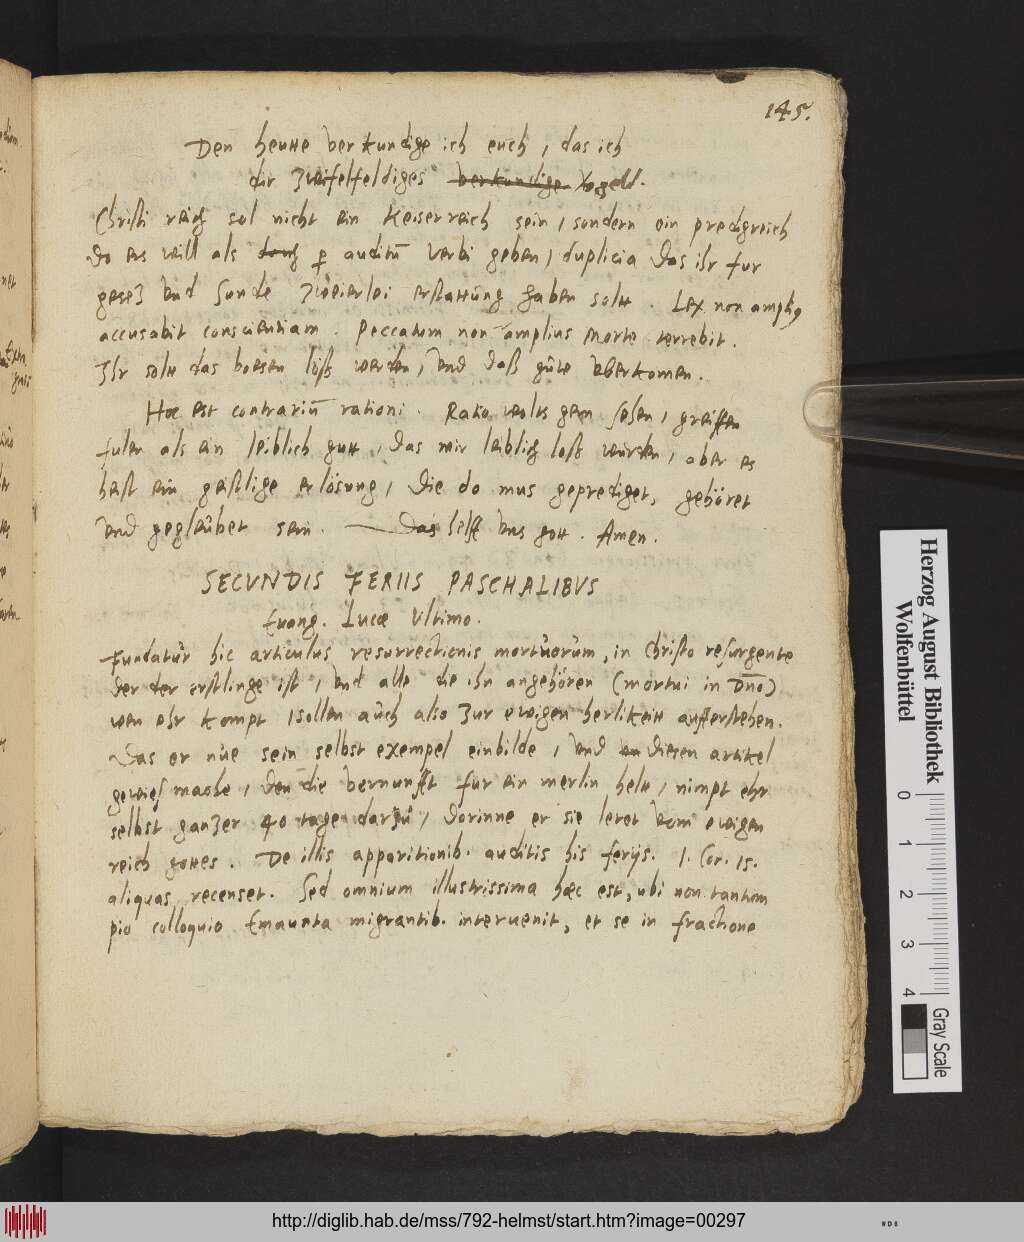 145.
Den heutte verkundige ich euch, das ich
dir zweifelfeldiges verkundige vogeld.
Christi reich sol nicht ein Keiserreich sein, sondern ein predigreich
do ers will als durch p auditū verbi geben, duplicia Das ihr fur
gesez vnd sunde zweierlei erstattung haben sollt. Lex non amplius
accusabit conscientiam. Peccatum non amplius morte terrebit.
Ihr solt das boesen loß werden, vnd daß gute vberkomen.
Hoc est contrariū rationi. Ratio wolts gern sehen, greiffen
fulen als ein leiblich gutt, das wir leiblich loß wurden, aber es
heist ein geistlige erlösung, Die do mus geprediget, gehöret
vnd gegleubet sein. Das helff vns gott. Amen.
SECVNDIS FERIIS PASCHALIBVS
Euang. Lucae Vltimo.
Fundatur hic articulus resurrectionis mortuorum, in Christo resurgente
Der der erstlinge ist, vnd alle die ihn angehören (mortui in Dno)
wen ehr kompt, sollen auch also zur ewigen herlikeitt aufferstehen.
Das er nue sein selbst exempel einbilde, vnd en diesen artikel
gewies mache, Den die vernunfft fur ein merlin helt, nimpt ehr
selbst ganzer 40 tage darzu, Dorinne er sie leret vom ewigen
reich gottes. De illis apparitionib. auditis his ferijs. 1. Cor. 15.
aliquas recenset. Sed omnium illustrissima haec est, ubi non tantum
pio colloquio Emaunta migrantib. interuenit, et se in fractione
Herzog August Bibliothek
Wolfenbüttel
0 1 2 3 4
Gray Scale
http://diglib.hab.de/mss/792-helmst/start.htm?image=00297